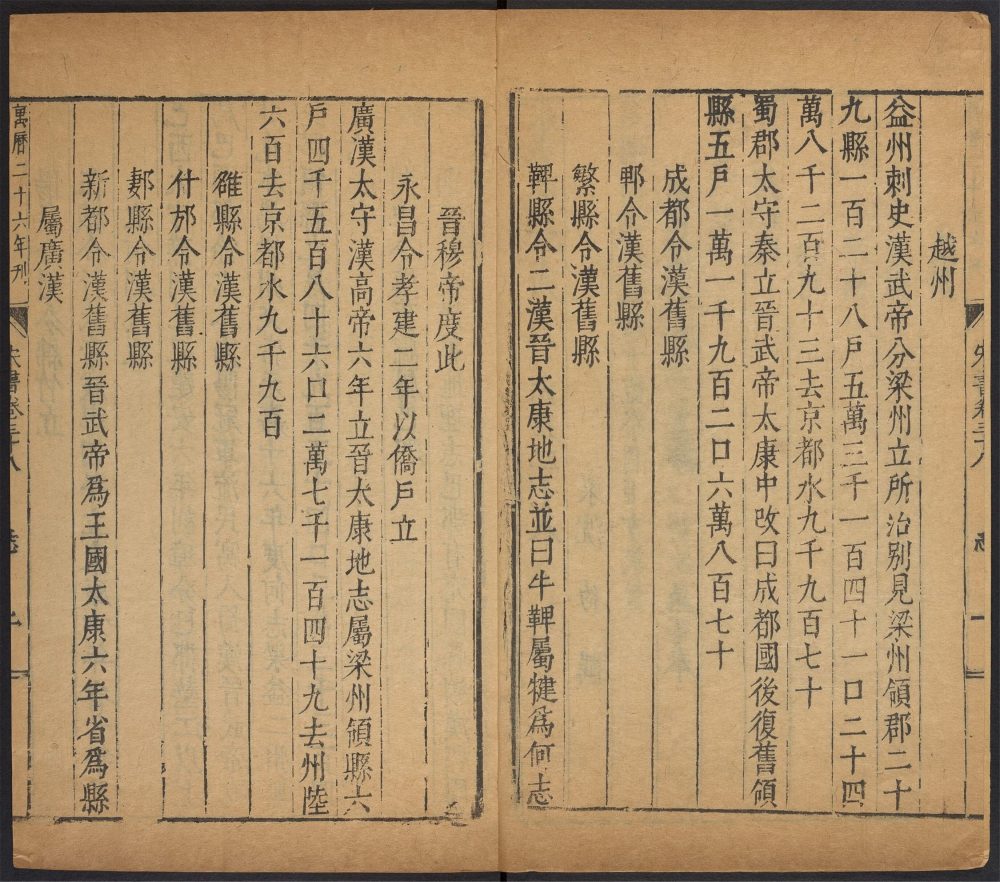 越州
益州刺史漢武帝分梁州立所治別見梁州領郡二十
九縣一百二十八戶五萬三千一百四十一口二十四
萬八千二百九十三去京都水九千九百七十
蜀郡太守秦立晉武帝太康中改曰成都國後復舊領
縣五戶一萬一千九百二口六萬八百七十
成都令漢舊縣
郫令漢舊縣
繁縣令漢舊縣
鞞縣令二漢晉太康地志並曰牛鞞屬犍爲何志
晉穆帝度此
永昌令孝建二年以僑戶立
廣漢太守漢高帝六年立晉太康地志屬梁州領縣六
戶四千五百八十六口二萬七千一百四十九去州陸
六百去京都水九千九百
雒縣令漢舊縣
什邡令漢舊縣
郪縣令漢舊縣
新都令漢舊縣晉武帝爲王國太康六年省爲縣
屬廣漢
萬曆二十六年刊
宋書卷三十八 志